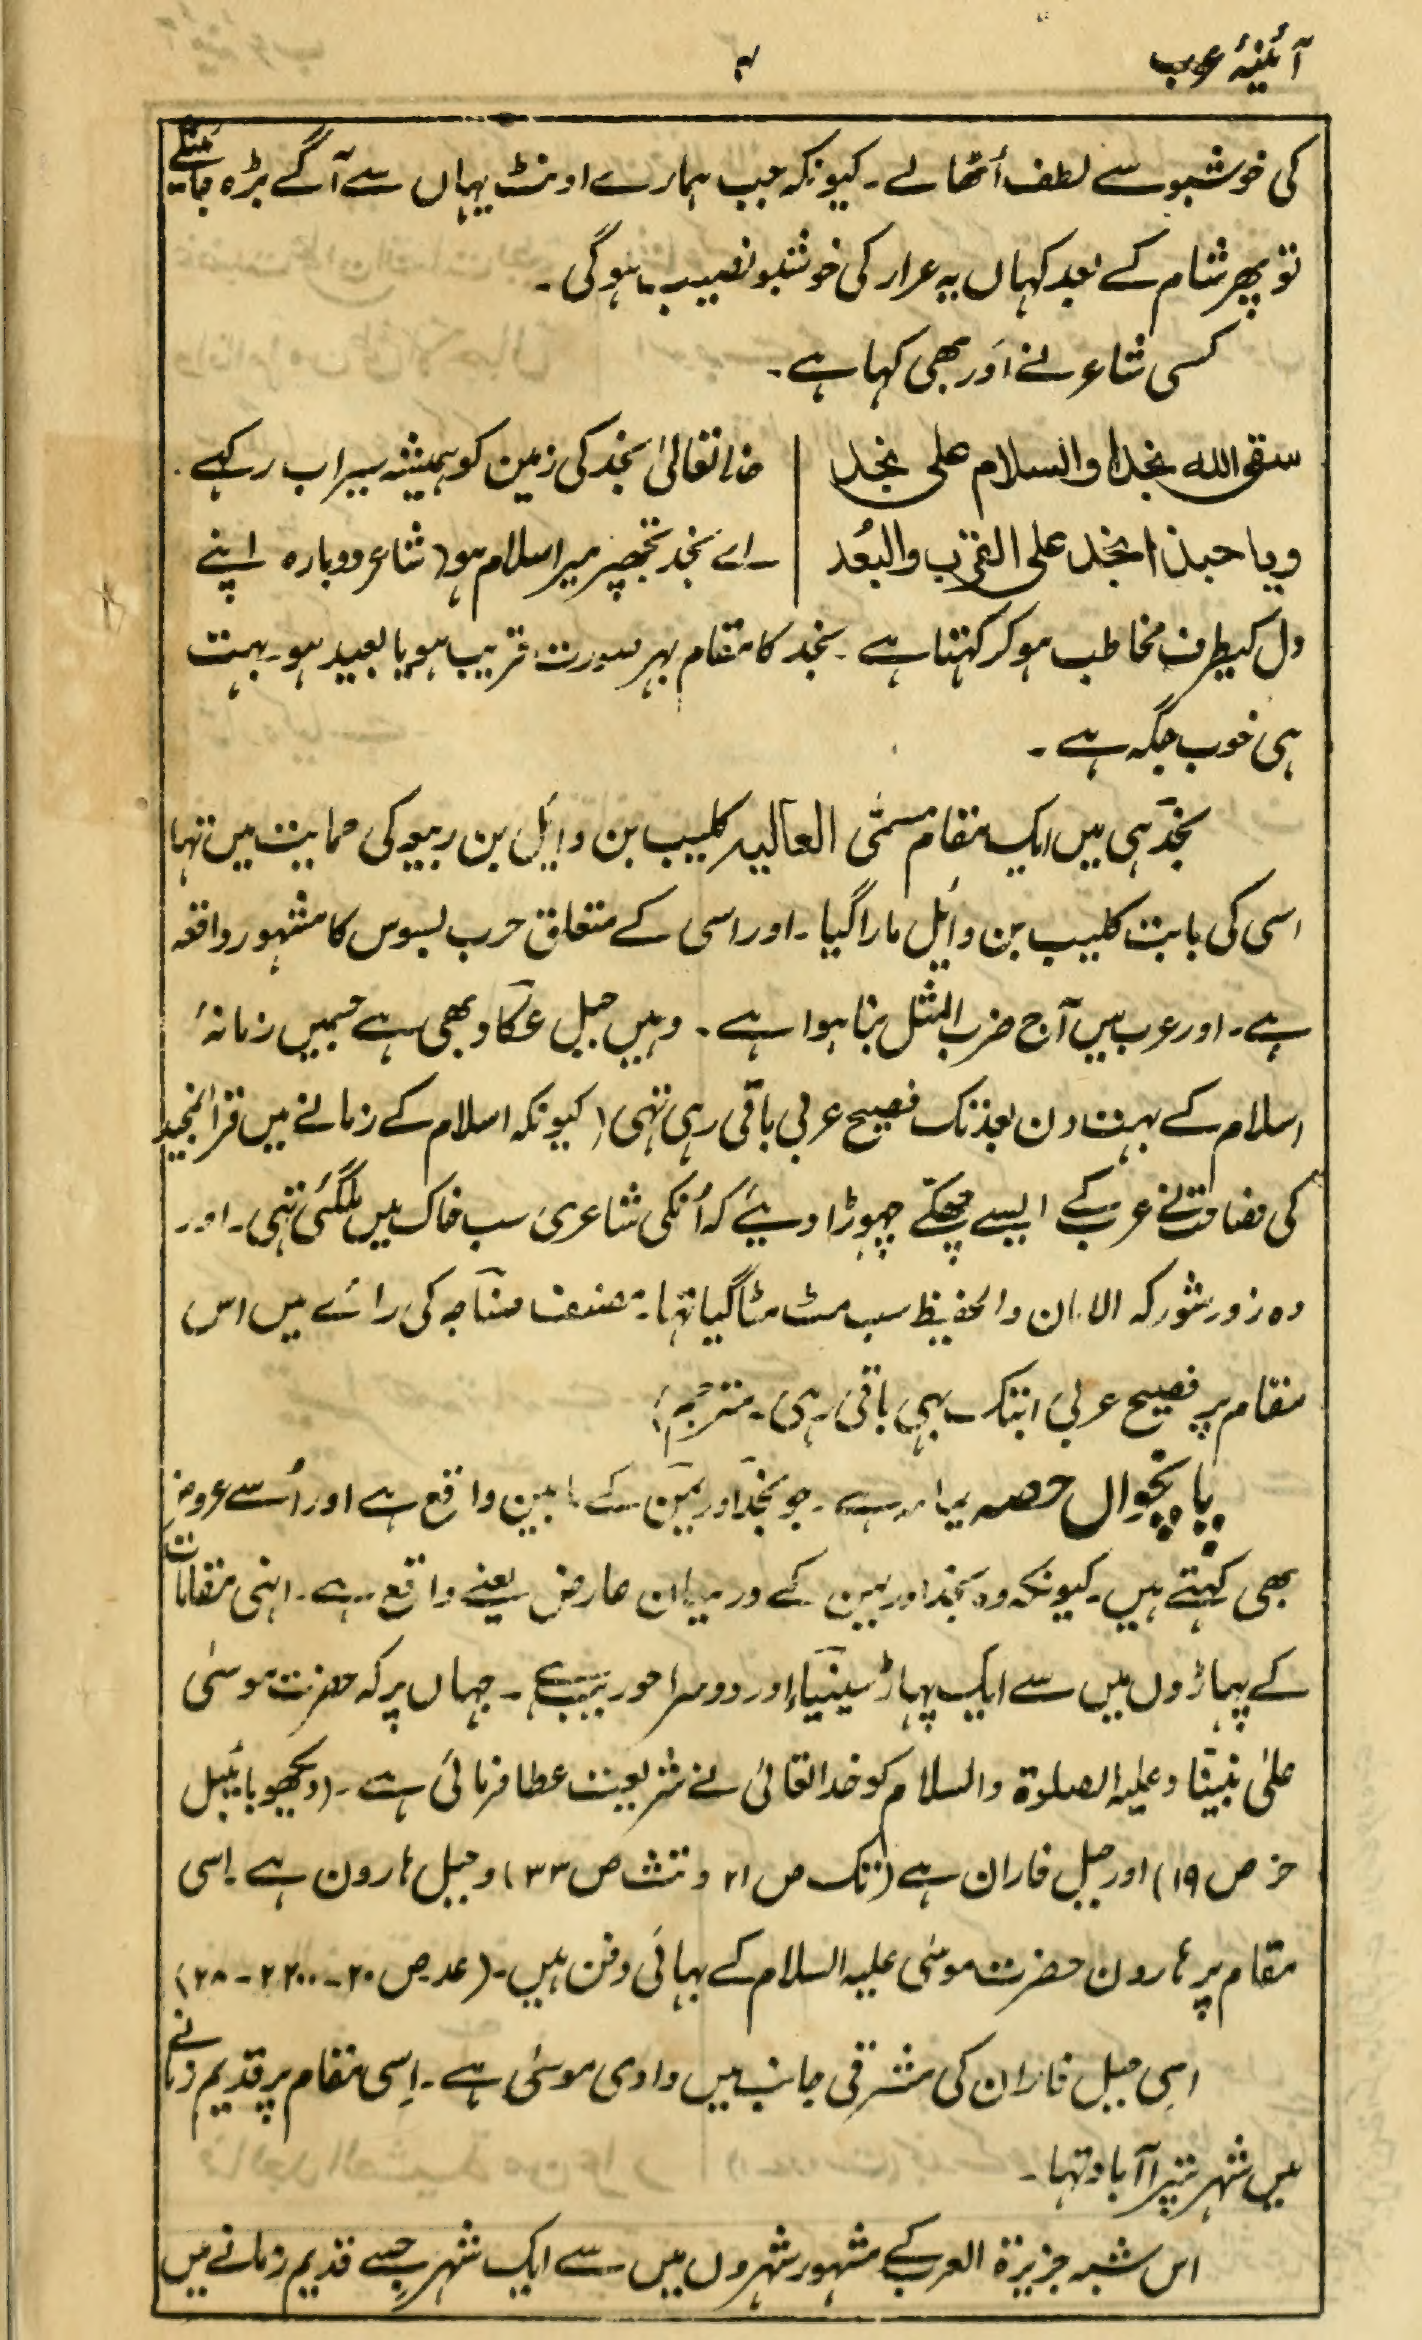 آئینۂ عرب
۴
کی خوشبو سے لطف اُٹھالے۔ کیونکہ جب ہمارے اونٹ یہاں سے آگے بڑہ جائینگے
تو پھر شام کے بعد کہاں یہ عرار کی خوشبو نصیب ہوگی۔
کسی شاعر نے اَور بھی کہا ہے۔
سقی اللہ نجدا والسلام علی نجد | خدا تعالیٰ نجد کی زمین کو ہمیشہ سیراب رکہے۔
ویا حبذا نجد علی القرب والبُعد | ۔اے نجد تجھپر میرا سلام ہو (شاعر دوبارہ اپنے
دل کیطرف مخاطب ہو کر کہتا ہے۔ نجد کا مقام بہر صورت قریب ہو یا بعید ہو۔ بہت
ہی خوب جگہ ہے۔
نجد ہی میں ایک مقام مسمّی العالیہ کلیب بن وائل بن ربیعہ کی حمایت میں تہا
اسی کی بابت کلیب بن وائل مارا گیا۔ اور اسی کے متعلق حرب بسوس کا مشہور واقعہ
ہے۔ اور عرب میں آج ضرب المثل بنا ہوا ہے۔ وہیں جبل عکاد بھی ہے جسمیں زمانۂ
اسلام کے بہت دن بعد تک فصیح عربی باقی رہی تہی (کیونکہ اسلام کے زمانے میں قرآنمجید
کی فصاحت نے عرب کے ایسے چھکے چہوڑا دیئے کہ اُنکی شاعری سب خاک میں ملگئی تہی۔ اور
وہ زور شور کہ الامان والحفیظ سب مٹ مٹا گیا تہا۔ مصنف صاحب کی رائے میں اس
مقام پر فصیح عربی ابتک بہی باقی رہی۔ مترجم)
پانچواں حصہ یمامہ ہے۔ جو نجد اور یمن کے مابین واقع ہے اور اُسے عروض
بھی کہتے ہیں۔ کیونکہ وہ نجد اور یمن کے درمیان عارض یعنے واقع ہے۔ انہی مقامات
کے پہاڑوں میں سے ایک پہاڑ سینیاء اور دوسرا حوریب ہے۔ جہاں پر کہ حضرت موسیٰ
علیٰ نبیّنا وعلیہ الصلوۃ والسلام کو خدا تعالیٰ نے شریعت عطا فرمائی ہے۔ (دیکھو بائیبل
خر ص ۱۹) اور جبل فاران ہے (تک ص ۲۱ و تث ص ۳۳) و جبل ہارون ہے۔ اسی
مقام پر ہارون حضرت موسٰی علیہ السلام کے بہائی دفن ہیں۔ (عد ص ۲۰-۲۲۰۰-۲۸)
اسی جبل فاران کی مشرقی جانب میں وادی موسٰی ہے۔ اِسی مقام پر قدیم زمانے
میں شہر تپرا آباد تہا۔
اس شبہ جزیرۃ العرب کے مشہور شہروں میں سے ایک شہر جسے قدیم زمانے میں